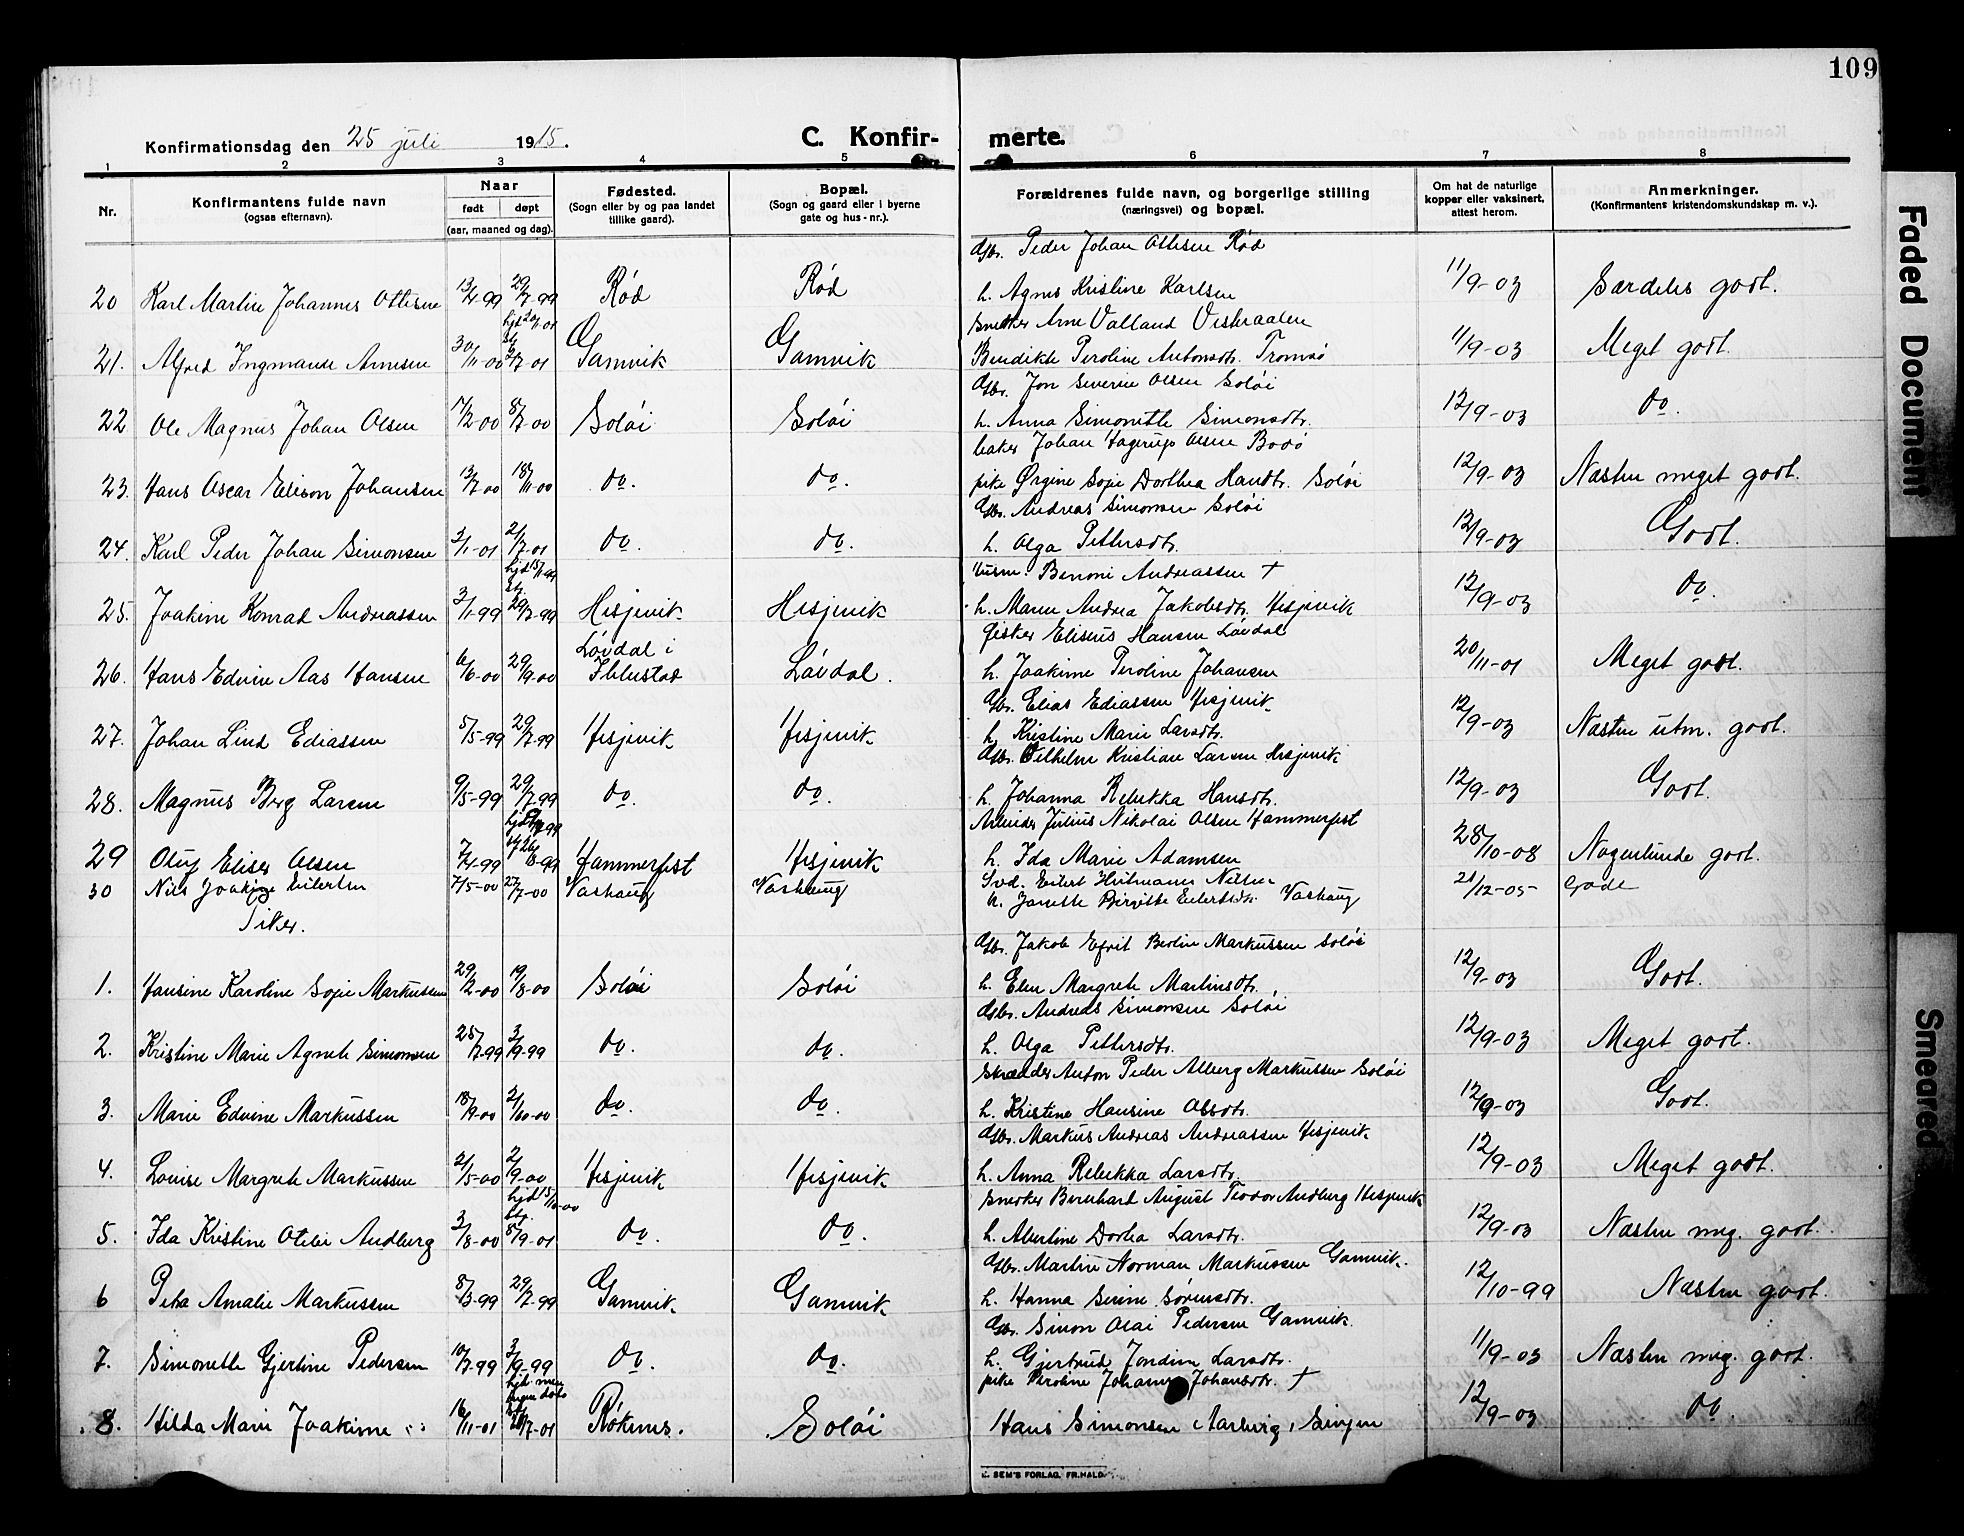 109
Konfirmationsdag den 25 juli 1915.
C. Konfir-
merte.
1 2 3 4 5 6 7 8
Nr.
Konfirmantens fulde navn
(ogsaa efternavn).
Naar
født døpt
(aar, maaned og dag).
Fødested.
(Sogn eller by og paa landet
tillike gaard).
Bopæl.
(Sogn og gaard eller i byerne
gate og hus-nr.).
Forældrenes fulde navn, og borgerlige stilling
(næringsvei) og bopæl.
Om hat de naturlige
kopper eller vaksinert,
attest herom.
Anmerkninger.
(Konfirmantens kristendomskundskap m. v.).
Gbr. Peder Johan Ottesen Rød
20 Karl Martin Johannes Ottesen 13/4-99 29/7-99 Rød Rød h. Agnes Kristine Karlsen 11/9-03 Særdeles godt.
Snekker Arne Valland Vesteraalen
21. Alfred Ingmande Arnesen 30/11-00 Gamvik Gamvik Bendikte Peroline Antonsdtr. Tromsø 11/9-03 Meget godt.
Gbr. Jon Severin Olsen Soløi
22 Ole Magnus Johan Olsen 17/2-00 8/7-00 Soløi Soløi h. Anna Simonette Simonsdtr. 12/9-03 do.
baker Johan Hagerup Olsen Bodø
23. Hans Oscar Edison Johansen 13/7-00 18/11-00 do. do. pike Ørgine Sofie Dorthea Hansdtr. Soløi 12/9-03 Næsten meget godt.
Gbr. Andreas Simonsen Soløi
24. Karl Peder Johan Simonsen 3/1-01 21/7-01 do. do. h. Olga Pettersdtr. 12/9-03 Godt.
Benoni Andreassen †
25. Joakim Konrad Andreassen 3/1-99 29/7-99 Hisjevik Hisjevik h. Maren Andrea Jakobsdtr. Hisjevik 12/9-03 do.
fisker Eliseus Hansen Løvdal
26. Hans Edvin Aas Hansen 6/6-00 29/9-00 Løvdal i Ibbestad Løvdal. h. Joakime Peroline Johansen 20/11-01 Meget godt.
Gbr. Elias Ediassen Hisjevik
27. Johan Lind Ediassen 5/5-99 29/7-99 Hisjevik Hisjevik h. Kristine Marie Larsdtr. 12/9-03 Næsten utm. godt.
Gbr. Vilhelm Kristian Larsen Hisjevik
28. Magnus Berg Larsen 9/5-99 29/7-99 do. do. h. Johanna Rebekka Hansdtr. 12/9-03 Godt.
Arbeider Julius Nikolai Olsen Hammerfest
29 Oluf Eliser Olsen 7/4-99 Hammerfest Hisjevik h. Ida Marie Adamsen 28/10-08 Nogenlunde godt.
30 Nils Joakim Eilertsen 7/5-00 27/7-00 Vashaug Vashaug Gbd. Eilert Hilmann Nilsen 21/12-05- Gode
h. Janette Birgitte Eilertsdtr. Vashaug
Piker.
Gbr. Jakob Efrit Berlin Markussen Soløi
1. Hansine Karoline Sofie Markussen 29/2-00 19/8-00 Soløi Soløi h. Elen Margrete Martinsdtr. 12/9-03 Godt.
Gbr. Andreas Simonsen Soløi
2. Kristine Marie Agnete Simonsen 25/7-99 3/9-99 do. do. h. Olga Pettersdtr. 12/9-03 Meget godt.
Skrædder Anton Peder Alberg Markussen Soløi
3. Marie Edvine Markussen 18/9-00 21/10-00 do. do. h. Kristine Hansine Olsdtr. 12/9-03 Godt.
Gbr. Markus Andreas Andreassen Hisjevik
4. Lovise Margrete Markussen 21/5-00 2/9-00 Hisjevik Hisjevik h. Anna Rebekka Larsdtr. 12/9-03 Meget godt.
Snekker Bernhart August Teodor Audberg Hisjevik
5. Ida Kristine Otelie Audberg 3/8-00 8/9-01 do. do. h. Albertine Dorthea Larsdtr. 12/9-03 Næsten meg. godt.
Gbr. Martin Norman Markussen Gamvik.
6 Petra Amalie Markussen 8/3-99 29/7-99 Gamvik Gamvik h. Hanna Sirine Sørensdtr. 12/10-99 Næsten godt.
Gbr. Simon Olai Pedersen Gamvik.
7. Simonette Gjertine Pedersen 10/7-99 3/9-99 do. do. h. Gjertrud Jondine Larsdtr. 11/9-03 Næsten meg. godt.
pike Peroline Johanne Johansdtr. †
8. Hilda Marie Joakime 16/11-01 Røknes. Soløi Hans Simonsen , Senjen 12/9-03 do.
SEM'S FORLAG. FR.HALD.
Faded Document
Smeared